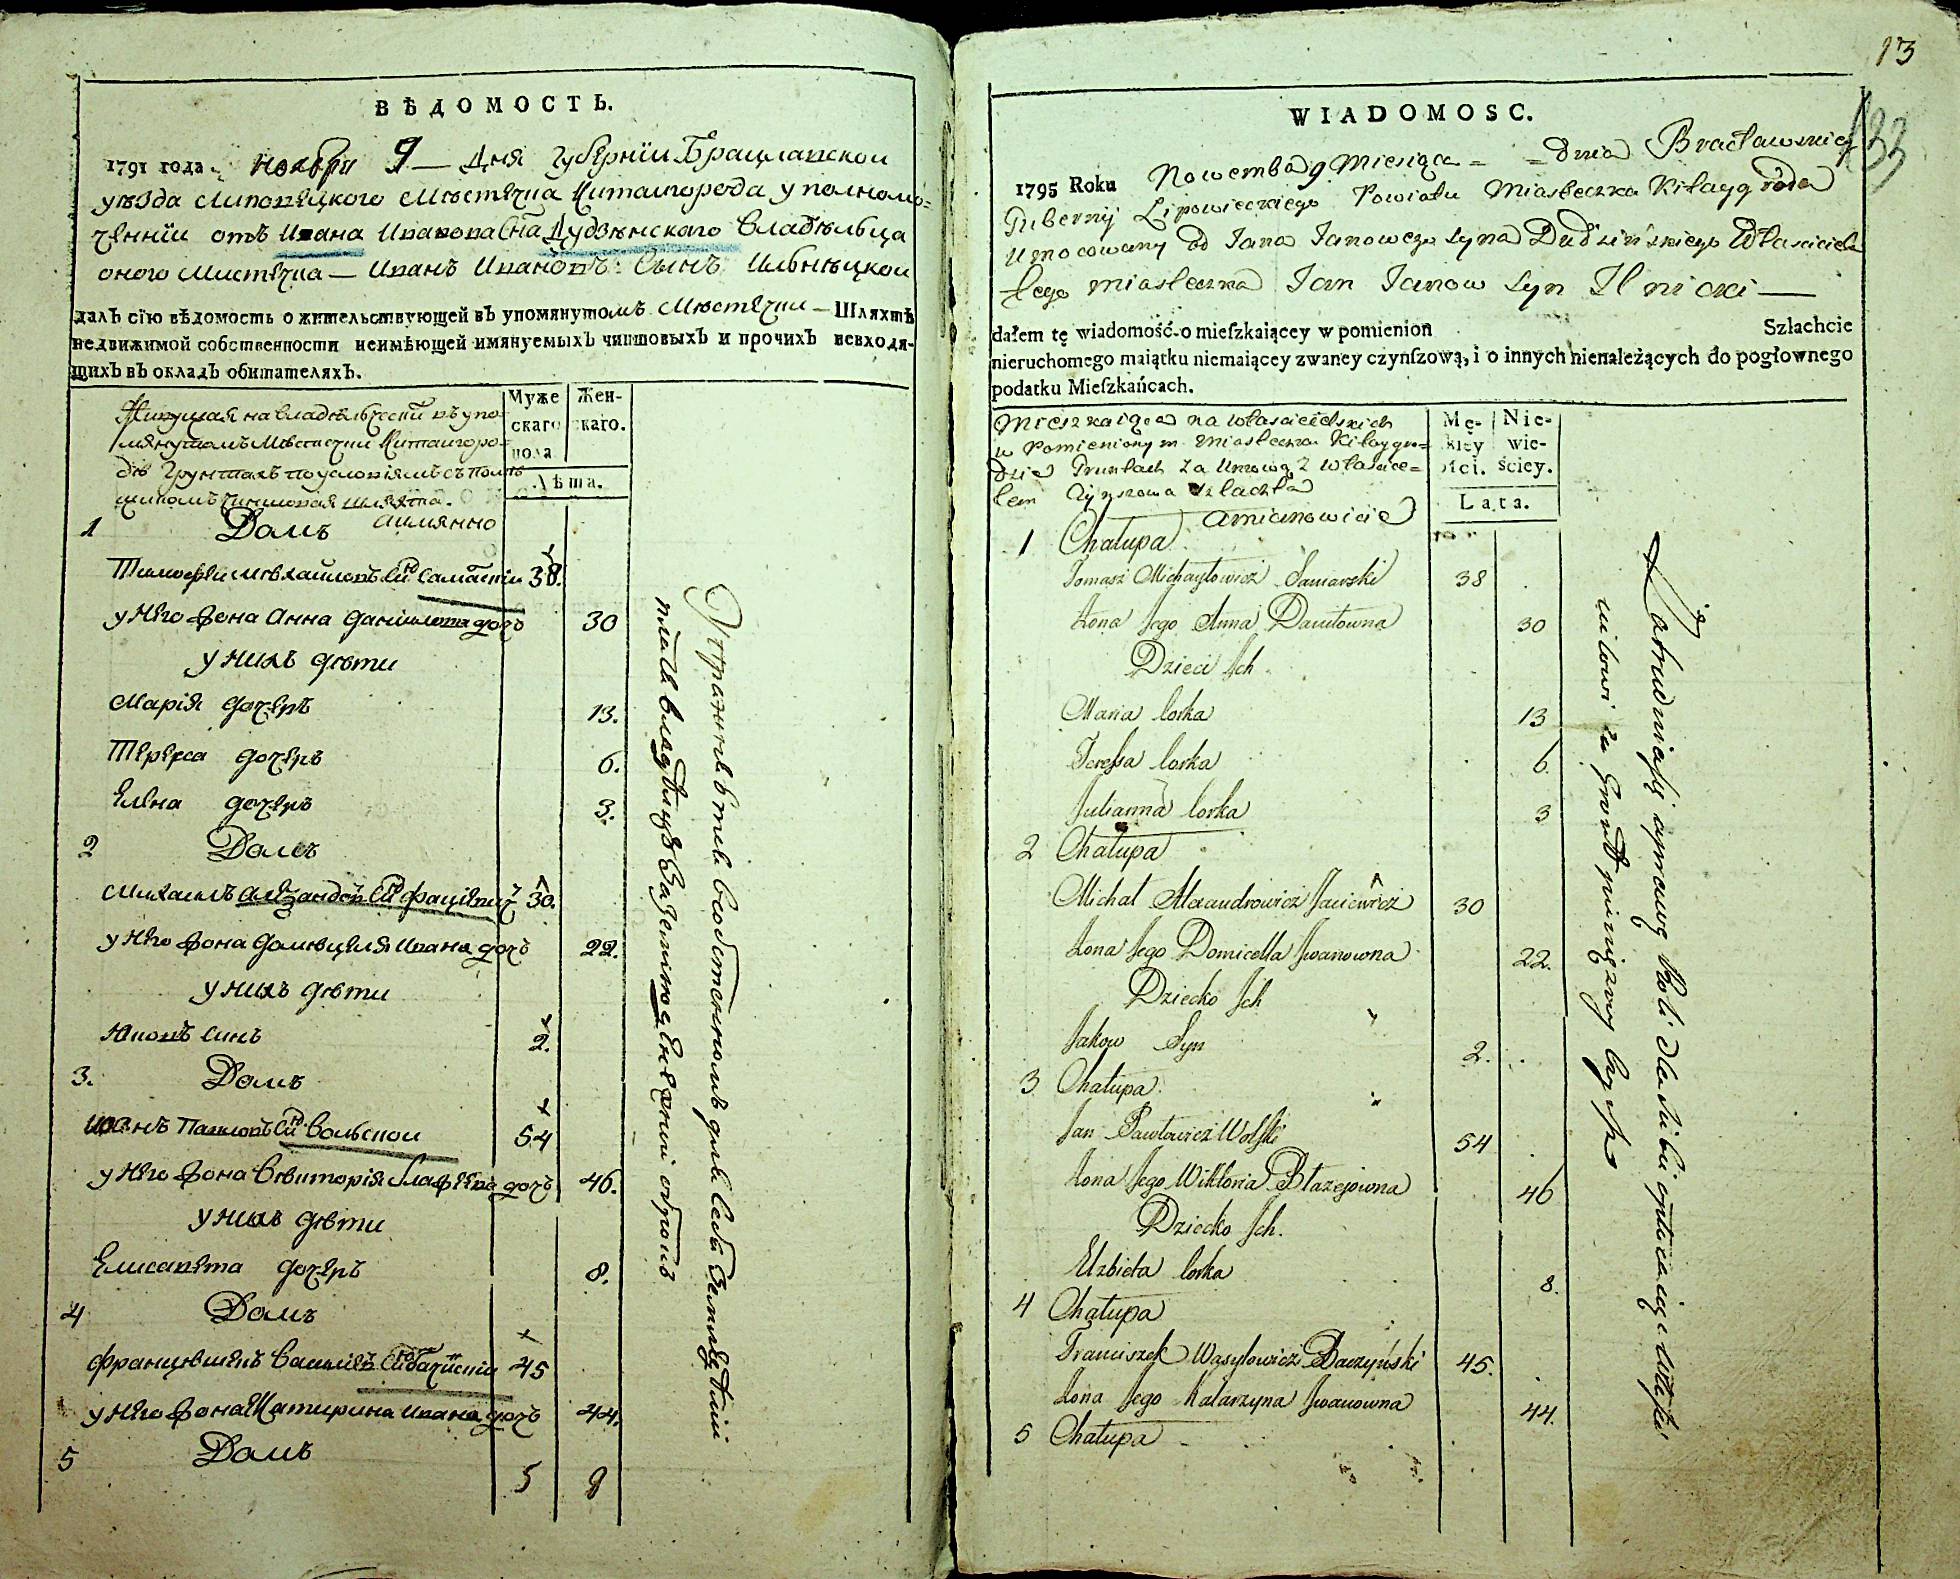 ВѢДОМОСТЬ.
1791 года ноября 9 — Дня Губернїи Брацлавской
уѣзда Липовецкого Мѣстечка Китайгорода уполномо=
ченнїи отъ Ивана Иванова Сна Дудзѣнскаго владѣльца
оного Мистечка — Иванъ Ивановъ Сынъ Ильнѣцкои
далъ сїю вѣдомость о жительствующей въ упомянутомъ Мѣстечки — Шляхтѣ
недвижимой собственности неимѣющей имянуемыхъ чиншовыхъ и прочихъ невходя-
щихъ въ окладъ обитателяхъ.
Муже
скаго
пола
Жен-
скаго.
Лѣта.
Живущая на владѣльческой въ упо=
мянутомъ Мѣстечки Китаигоро=
дѣ Грунтахъ по условїямъ с помѣ
щикомъ Чиншовая шляхта.
аимянно
1 Домъ
Тимофеи Мѣхайловъ Снъ 38.
у него жена Анна Данїилова дочь 30
у нихъ дѣти
Марїя дочерь 13.
Тереса дочерь 6.
Елена дочерь 3.
2 Домъ
Михаилъ Александровъ Снъ Фацїевич 30.
у него жона Домѣцеля Ивана дочь 22.
у нихъ дѣти
Яковъ синъ 2.
3. Домъ
Иванъ Павловъ Снъ Вольскои 54
у него жона Вѣкторїя дочь 46.
у нихъ дѣти
Елисавета дочерь 8.
4 Домъ
Францѣшекъ Василїевъ Снъ 45
у него жона Катирина Ивана дочь 44.
5 Домъ
5 9
Упражняется в собственномъ для себя земледѣлїи
плате владѣлцу за землю денежнои оброкъ
13
133
WIADOMOSC.
1795 Roku Nowembra 9 Miesiąca = = dnia Bracławskiey
Gubernij Lipowieckiego Powiatu Miasteczka Kitaygroda
Umocowany od Jana Janowego Syna Dudzińskiego Właściciela
tego Miasteczka Jan Janow Syn Ilnicki —
dałem tę wiadomość o mieſzkaiącey w pomienion Szlachcie
nieruchomego maiątku niemaiącey zwaney czynſzową, i o innych nienależących do pogłownego
podatku Mieſzkańcach.
Mę-
kiey
ości.
Nie-
wie-
ściey.
Lata.
Mieszkaiąca na właścicielskich
w Pomienionym Miasteczku Kitaygro=
dzie Gruntach za Umową z właścicie=
lem Czynszowa Szlachta
amianowicie
1 Chałupa
Tomasz Michayłowicz Samarski 38
Żona Jego Anna Daniłowna 30
Dzieci Jch
Maria Corka 13
Teressa Corka 6.
Julianna Corka 3
2 Chałupa
Michał Alexandrowicz Faciewicz 30
Żona Jego Domicella Jwanowna 22.
Dziecko Jch
Jakow Syn 2.
3 Chałupa
Jan Pawłowicz Wolski 54
Żona Jego Wiktoria Błażejowna 46
Dziecko Jch.
Elżbieta Corka 8.
4 Chałupa
Franciszek Wasylowicz Baczyński 45.
Żona Jego Katarzyna Jwanowna 44.
5 Chałupa
Zatrudniaſię uprawą Roli dla siebie opłacaiąc właści
cielowi za Grunt pieniężny Czynsz